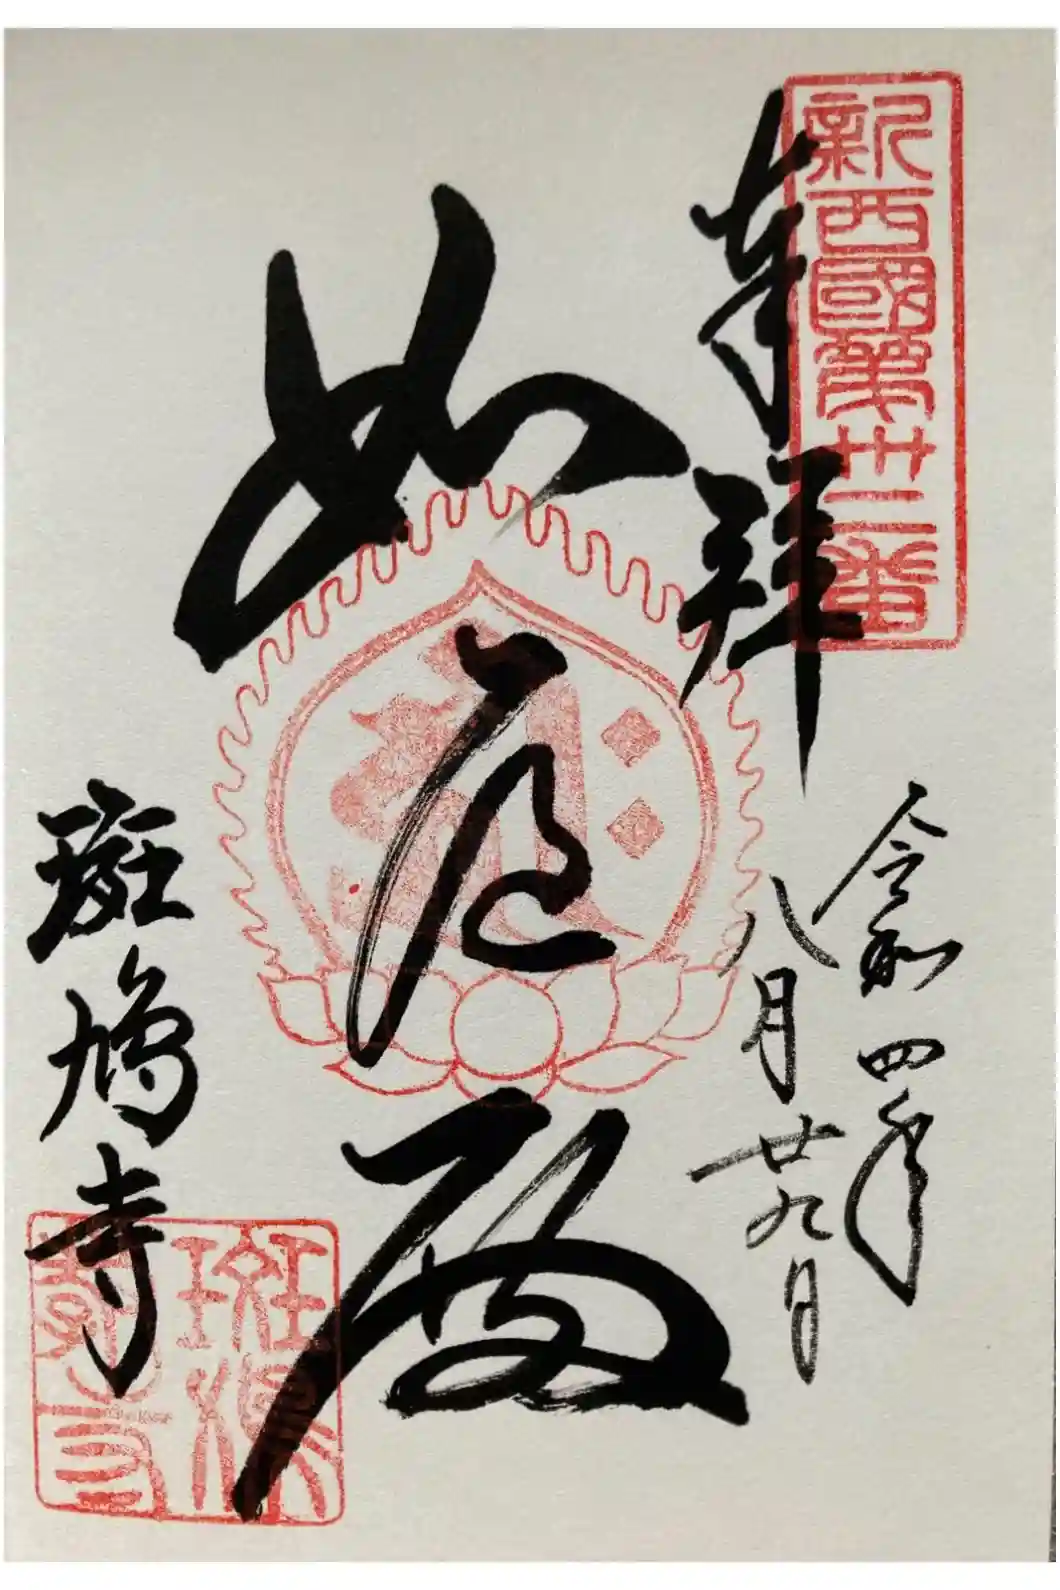 新西國第卅二番
奉拝
令和四年
八月廿九日
如意殿
斑鳩寺
斑鳩